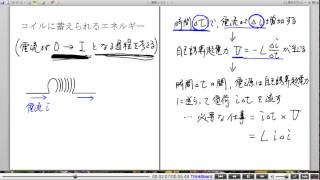 コイルに蓄えられるエネルギー
(電流が 0 → I となる過程を考える)
電流 i
時間 Δt で、電流が Δi 増加する
自己誘導起電力 V = -L Δi/Δt が生じる
時間 Δt の間、電源は自己誘導起電力
に逆らって電荷 iΔt を流す
… 必要な仕事 = iΔt × V
= L i Δi